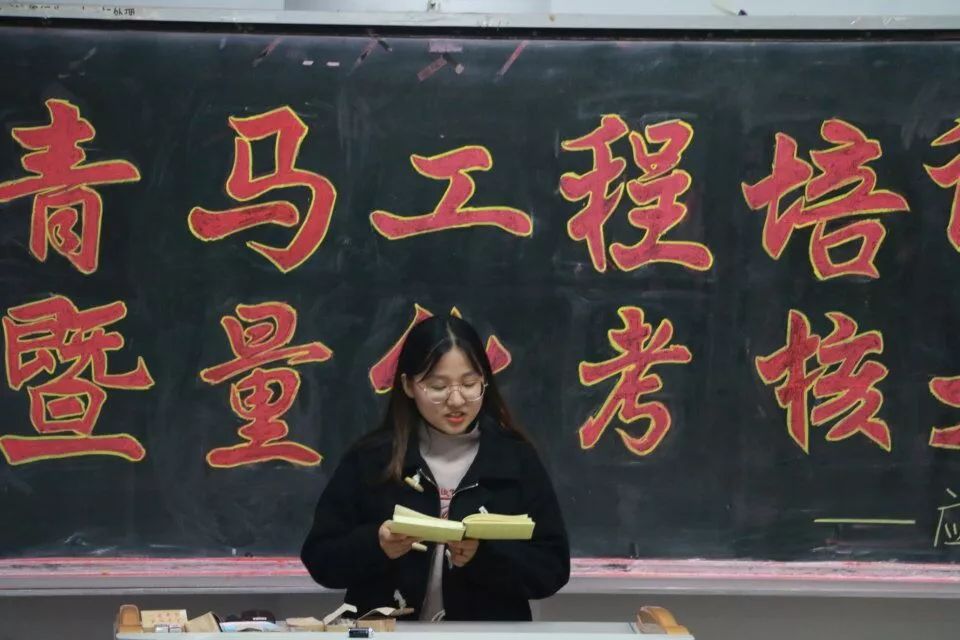 青马工程培
暨量考核
应